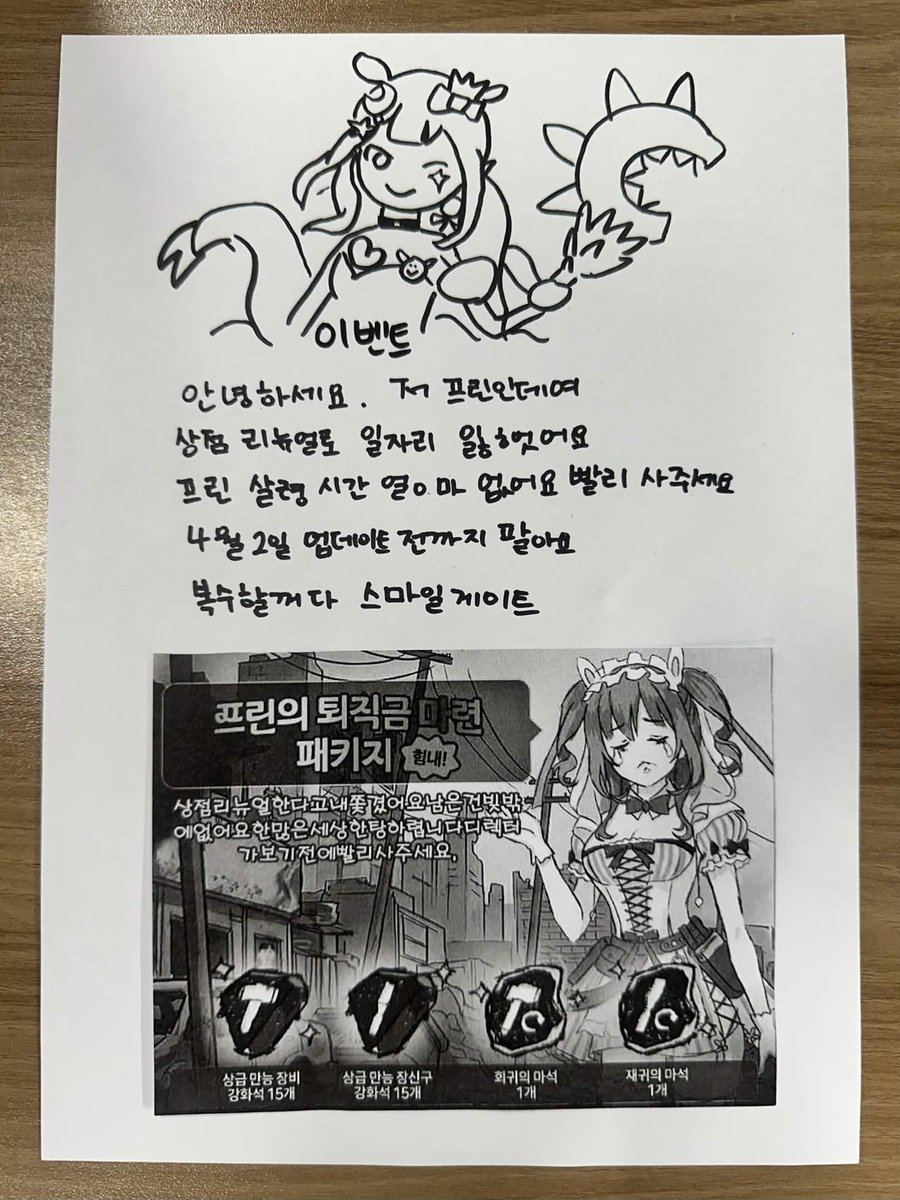 이벤트
안녕하세요. 저 프린인데여
상점 리뉴얼로 일자리 잃헜어요
프린 살령 시간 열마 없어요 빨리 사주세요
4월 2일 업데이트 전까지 팔아요
복수할꺼다 스마일게이트
프린의 퇴직금 마련
패키지 힘내!
상점리뉴얼한다고내쫓겼어요남은건빚밖
에없어요한많은세상한탕하렵니다디렉터
가보기전에빨리사주세요.
상급 만능 장비
강화석 15개
상급 만능 장신구
강화석 15개
회귀의 마석
1개
재귀의 마석
1개